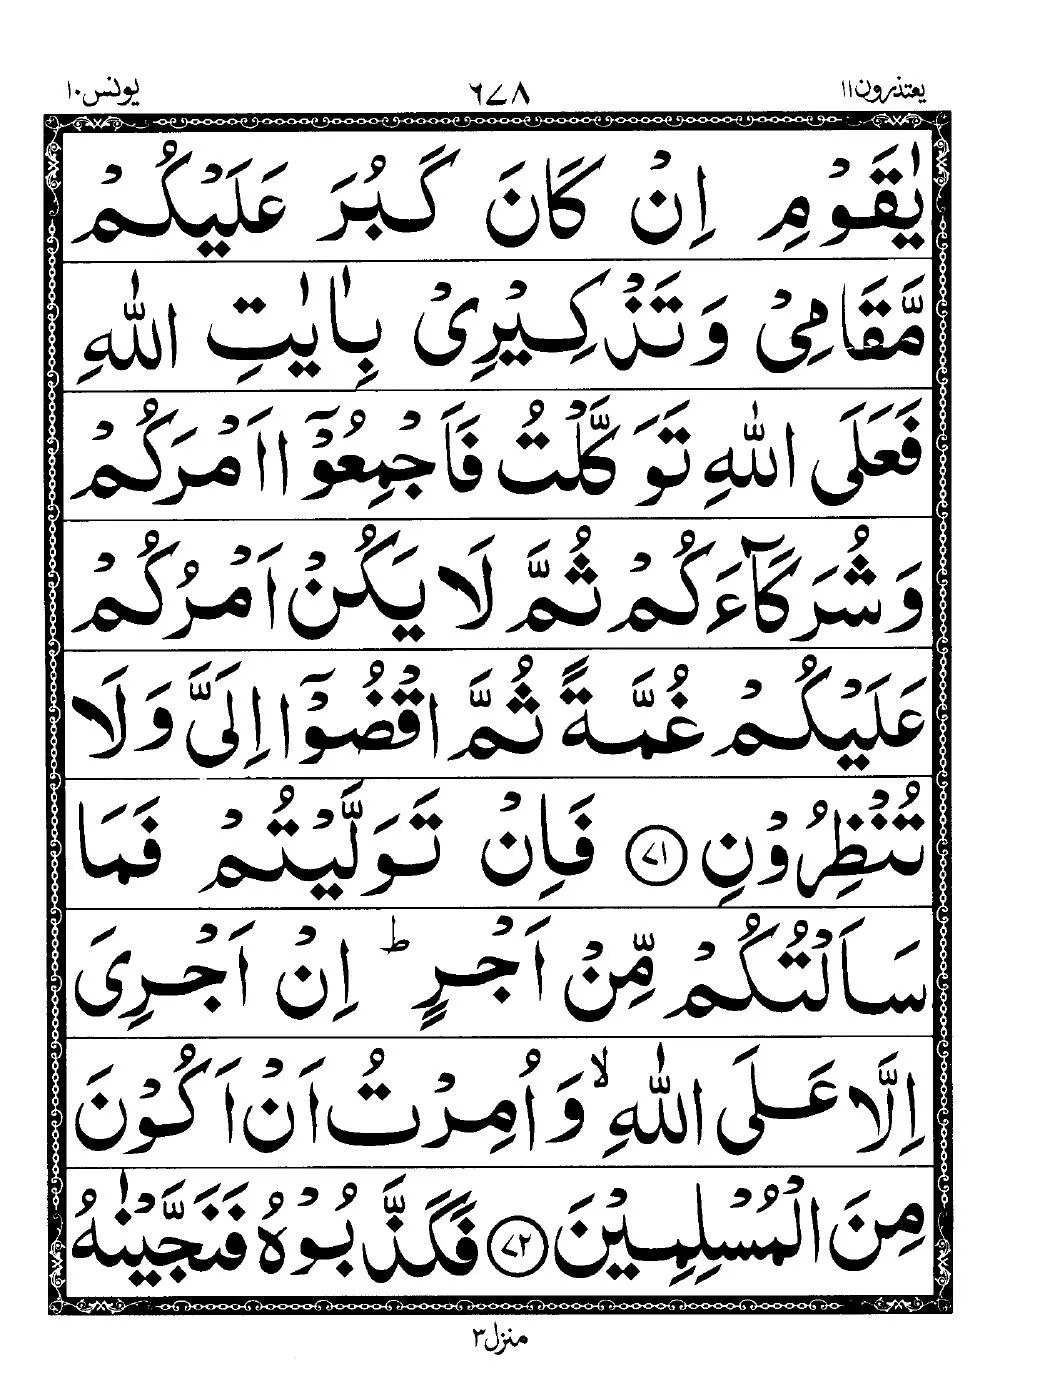 یعتذرون ۱۱
۶۷۸
یونس ۱۰
یٰقَوْمِ اِنْ كَانَ كَبُرَ عَلَیْكُمْ
مَّقَامِیْ وَ تَذْكِیْرِیْ بِاٰیٰتِ اللّٰهِ
فَعَلَی اللّٰهِ تَوَكَّلْتُ فَاَجْمِعُوْۤا اَمْرَكُمْ
وَ شُرَكَآءَكُمْ ثُمَّ لَا یَكُنْ اَمْرُكُمْ
عَلَیْكُمْ غُمَّةً ثُمَّ اقْضُوْۤا اِلَیَّ وَ لَا
تُنْظِرُوْنِ ﴿۷۱﴾ فَاِنْ تَوَلَّیْتُمْ فَمَا
سَاَلْتُكُمْ مِّنْ اَجْرٍ ؕ اِنْ اَجْرِیَ
اِلَّا عَلَی اللّٰهِ ۙ وَ اُمِرْتُ اَنْ اَكُوْنَ
مِنَ الْمُسْلِمِیْنَ ﴿۷۲﴾ فَكَذَّبُوْهُ فَنَجَّیْنٰهُ
منزل ۳